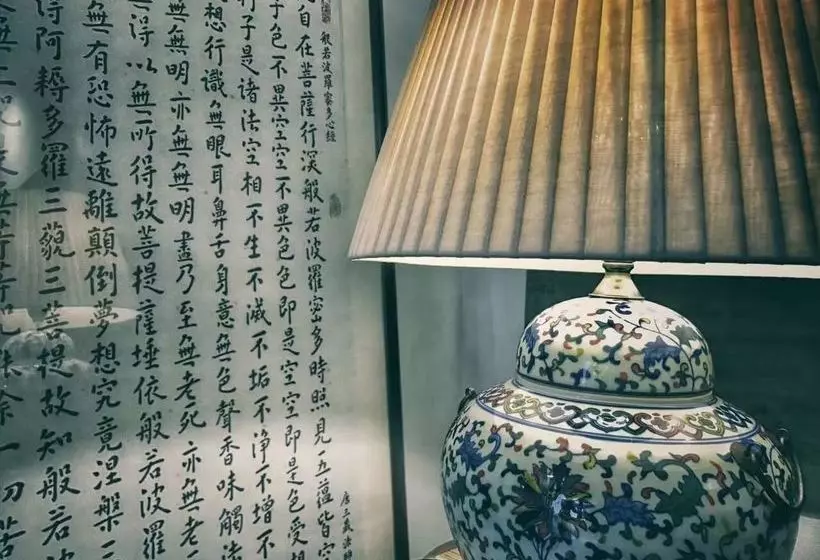 般若波羅蜜多心經
唐三藏法
自在菩薩行深般若波羅密多時照見五蘊皆空
子色不異空空不異色色即是空空即是色受想
子是諸法空相不生不滅不垢不淨不增不
想行識無眼耳鼻舌身意無色聲香味觸法
無無明亦無無明盡乃至無老死亦無老
得以無所得故菩提薩埵依般若波羅
無有恐怖遠離顛倒夢想究竟涅槃三
得阿耨多羅三藐三菩提故知般若波
上咒是無等等咒能除一切苦